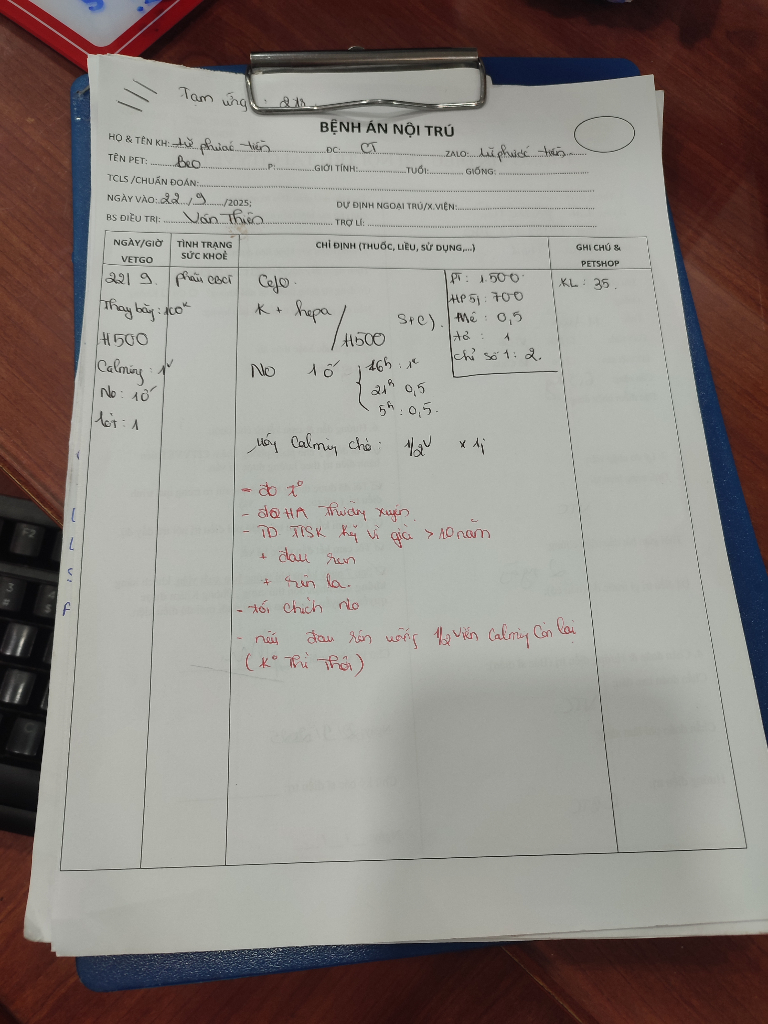 Tạm ứng : 2tr
BỆNH ÁN NỘI TRÚ
HỌ & TÊN KH: Lữ phước tiến ĐC: CT ZALO: Lữ phước tiến
TÊN PET: Beo P: GIỚI TÍNH: TUỔI: GIỐNG:
TCLS /CHUẨN ĐOÁN:
NGÀY VÀO: 22 / 9 /2025; DỰ ĐỊNH NGOẠI TRÚ/X.VIỆN:
BS ĐIỀU TRỊ: Văn Thiên TRỢ LÍ:
NGÀY/GIỜ VETGO
TÌNH TRẠNG SỨC KHOẺ
CHỈ ĐỊNH (THUỐC, LIỀU, SỬ DỤNG,...)
GHI CHÚ & PETSHOP
22/ 9.
Thay băg: 100k
H500
Calming: 1v
No: 10
lót: 1
Cefo.
K + hepa / H500
S+C).
No 10
16h: 1c
21h 0,5
5h: 0,5.
PT: 1.500
HP 5j: 700
Mê: 0,5
1
chỉ số 1: 2.
KL: 35.
uốg Calmig chó: 1/2v x 1j
- đo t°
- đo HA thường xuyên
- TD TTSK kỹ vì già > 10 năm
+ đau run
+ rên la.
- tối chích No
- nếu đau rên uống 1/2 viên Calmig còn lại
(K° thì thôi)
F2